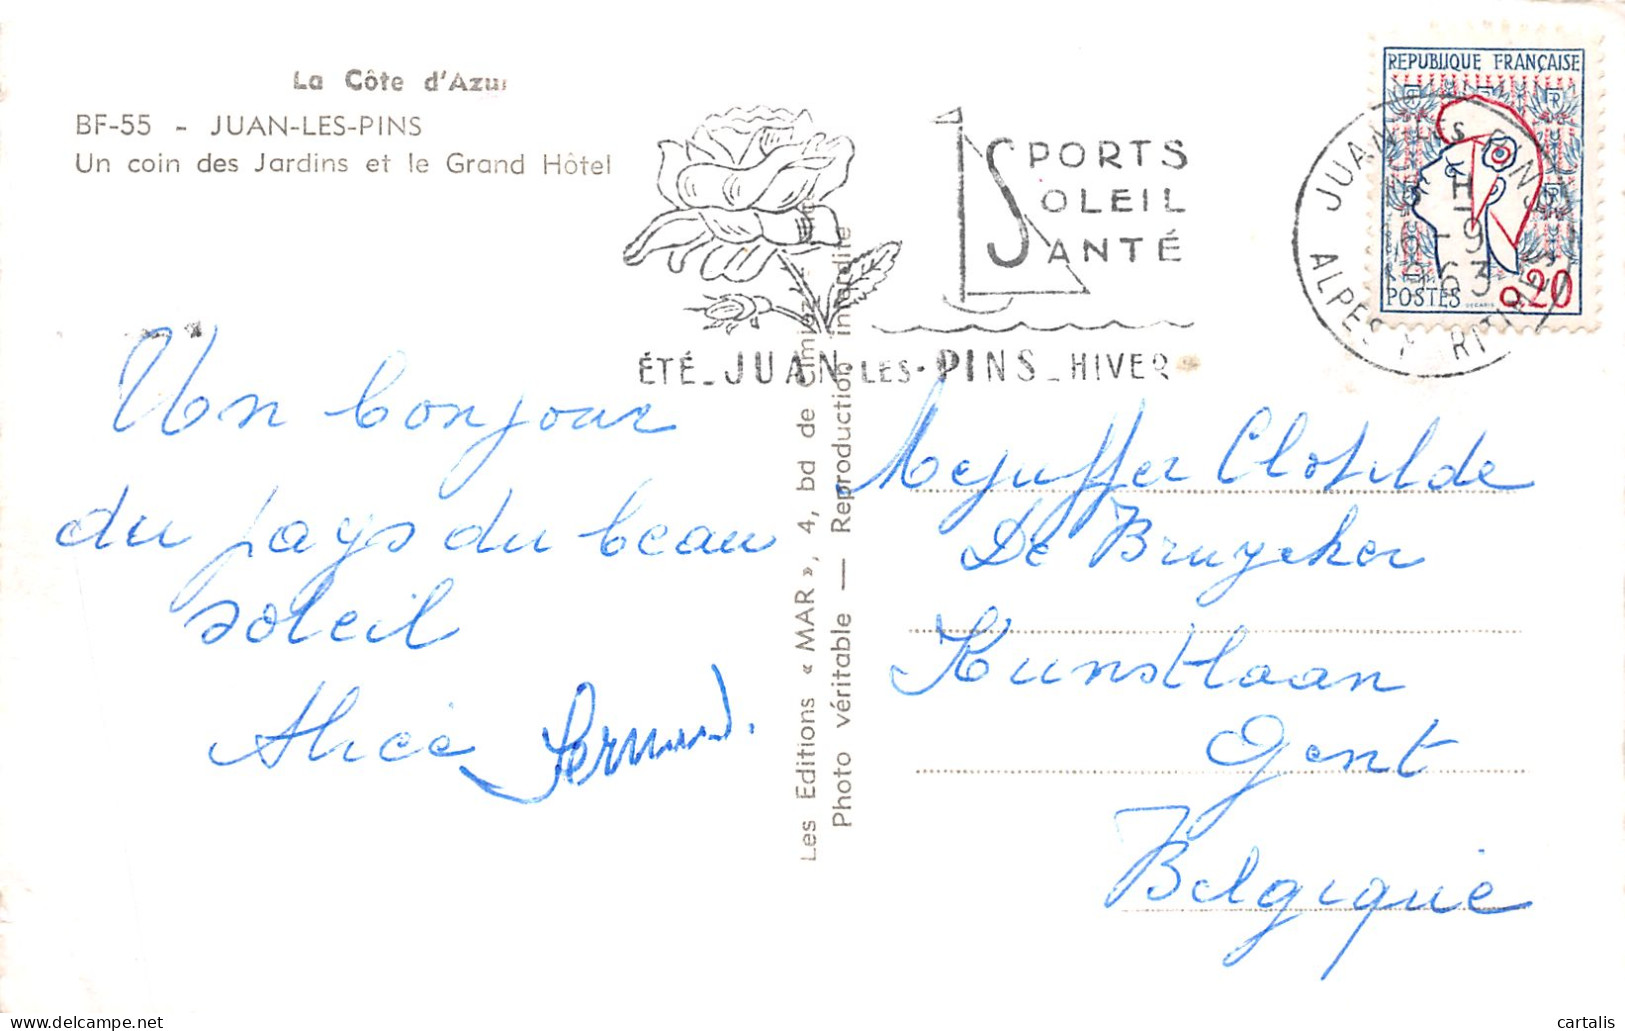 La Côte d'Azur
BF-55 - JUAN-LES-PINS
Un coin des Jardins et le Grand Hôtel
SPORTS
SOLEIL
SANTÉ
ÉTÉ_JUAN-LES-PINS_HIVER
REPUBLIQUE FRANÇAISE
POSTES 0,20
JUAN LES PINS
H
-9
1963
ALPES MARITIMES
Un bonjour
du pays du beau
soleil
Alice
Les Editions « MAR », 4, bd de Cimiez
Photo véritable — Reproduction interdite
Mejuffer Clotilde
De Bruycker
Kunstlaan
Gent
Belgique
cartalis